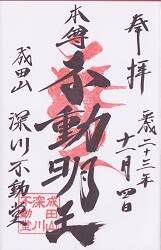 奉拝
平成二十三年
十一月四日
本尊
不動明王
成田山
深川不動堂
成田山
深川
不動堂